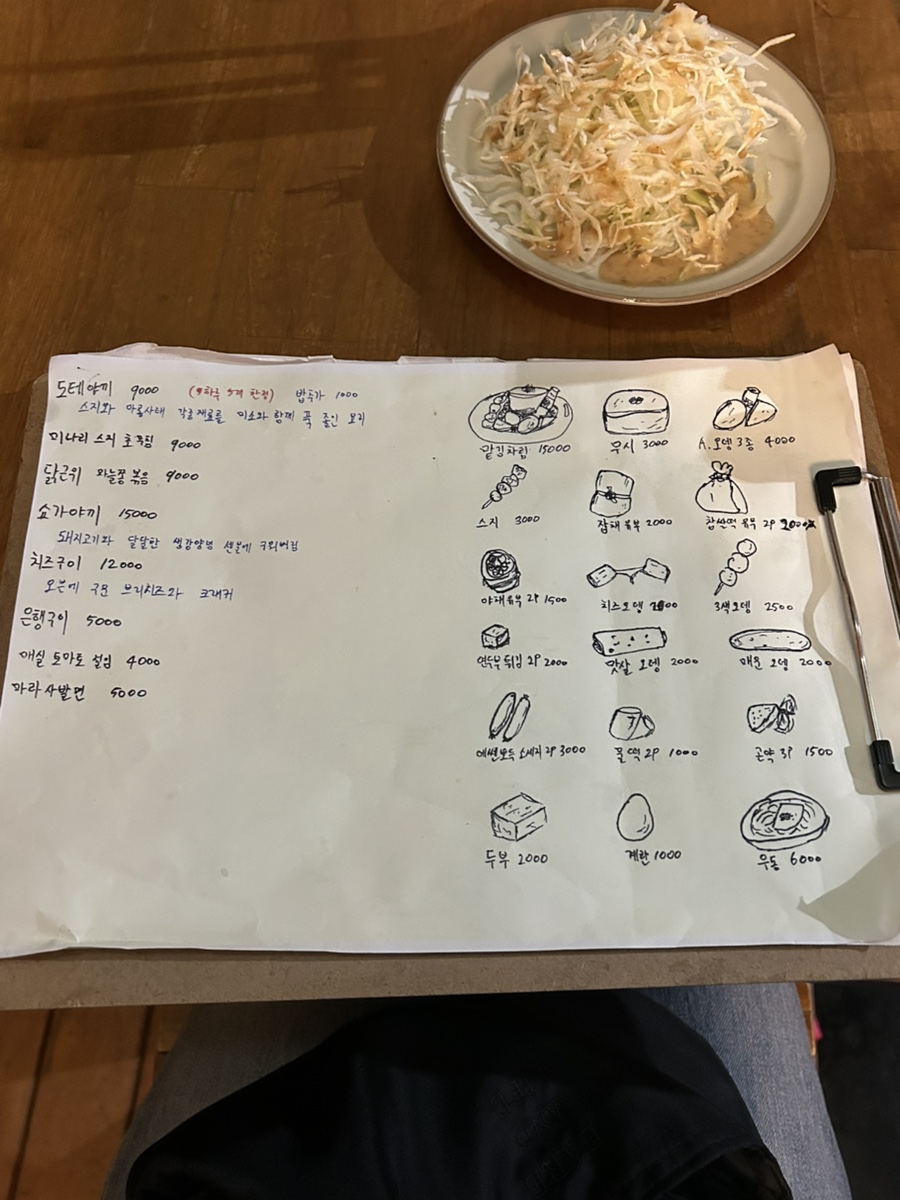 도테야끼 9000 (하루 5개 한정) 밥추가 1000
스지와 아롱사태 각종재료를 미소와 함께 푹 졸인 요리
미나리 스지 초무침 9000
닭근위 마늘쫑 볶음 9000
쇼가야끼 15000
돼지고기와 달달한 생강양념 센불에 구워버림
치즈구이 12000
오븐에 구운 브리치즈와 크래커
은행구이 5000
매실 토마토 절임 4000
마라 사발면 5000
맡김차림 15000
무시 3000
A.오뎅 3종 4000
스지 3000
잡채 유부 2000
찹쌀떡 유부 2P
야채유부 2P 1500
치즈오뎅
3색오뎅 2500
연두부 튀김 2P 2000
맛살 오뎅 2000
매운 오뎅 2000
소세지 2P 3000
물떡 2P 1000
곤약 3P 1500
두부 2000
계란 1000
우동 6000